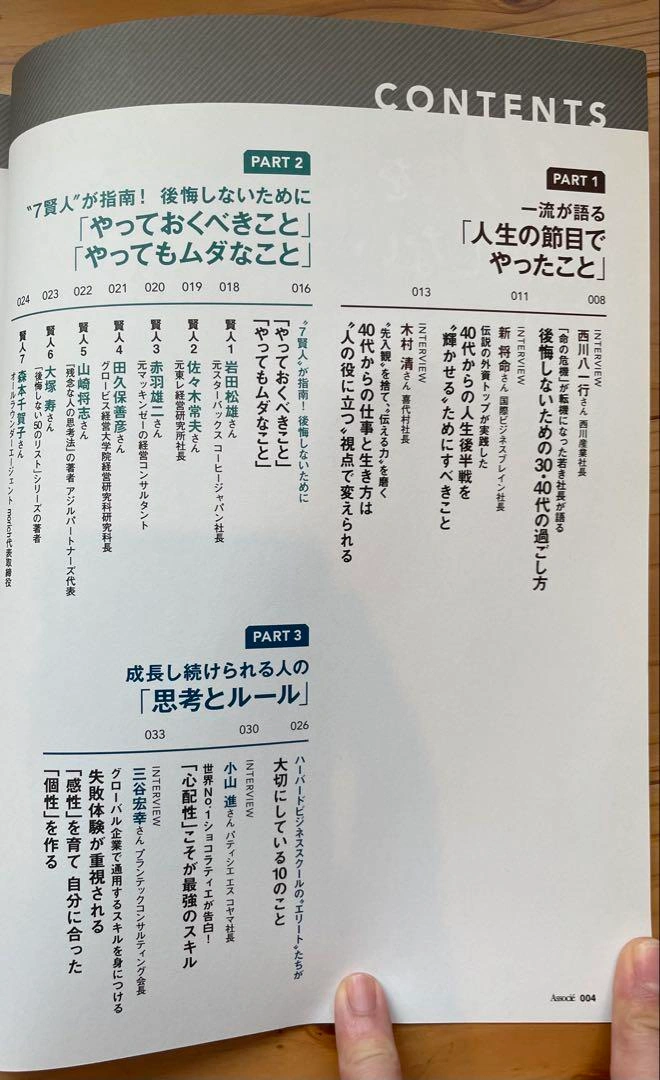 CONTENTS
PART 1
一流が語る
「人生の節目で
やったこと」
008
INTERVIEW
西川八一行さん 西川産業社長
「命の危機」が転機になった若き社長が語る
後悔しないための30・40代の過ごし方
011
INTERVIEW
新 将命さん 国際ビジネスブレイン社長
伝説の外資トップが実践した
40代からの人生後半戦を
“輝かせる”ためにすべきこと
013
INTERVIEW
木村 清さん 喜代村社長
“先入観”を捨て、“伝える力”を磨く
40代からの仕事と生き方は
“人の役に立つ”視点で変えられる
PART 2
“7賢人”が指南! 後悔しないために
「やっておくべきこと」
「やってもムダなこと」
016
“7賢人”が指南! 後悔しないために
「やっておくべきこと」
「やってもムダなこと」
018
賢人1 岩田松雄さん
元スターバックス コーヒージャパン社長
019
賢人2 佐々木常夫さん
元東レ経営研究所社長
020
賢人3 赤羽雄二さん
元マッキンゼーの経営コンサルタント
021
賢人4 田久保善彦さん
グロービス経営大学院経営研究科研究科長
022
賢人5 山崎将志さん
「残念な人の思考法」の著者 アジルパートナーズ代表
023
賢人6 大塚 寿さん
「後悔しない50のリスト」シリーズの著者
024
賢人7 森本千賀子さん
オールラウンダーエージェント morich代表取締役
PART 3
成長し続けられる人の
「思考とルール」
026
ハーバードビジネススクールの“エリート”たちが
大切にしている10のこと
030
INTERVIEW
小山 進さん パティシエ エス コヤマ社長
世界No.1ショコラティエが告白!
「心配性」こそが最強のスキル
033
INTERVIEW
三谷宏幸さん プランテックコンサルティング会長
グローバル企業で通用するスキルを身につける
失敗体験が重視される
「感性」を育て 自分に合った
「個性」を作る
Associé 004